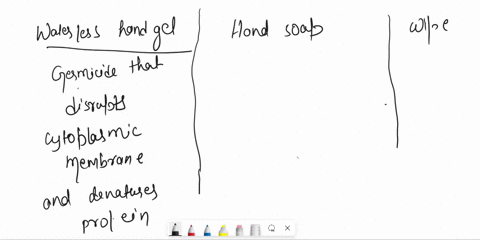 Waterless hand gel
Germicide that
disrupts
cytoplasmic
membrane
and denatures
protein
Hand soap
wipe